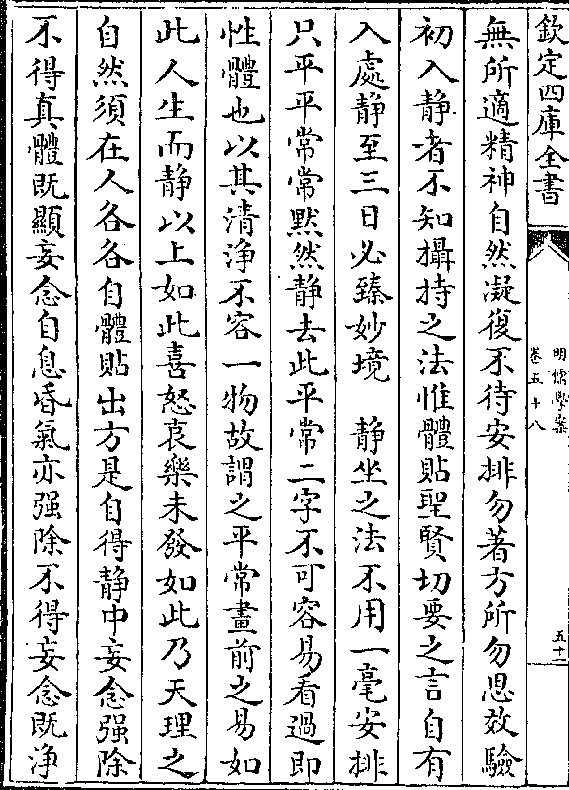 欽定四庫全書
明儒學案
卷五十八
五十二
無所適精神自然凝復不待安排勿著方所勿思效驗
初入静者不知攝持之法惟體貼聖賢切要之言自有
入處静至三日必臻妙境　静坐之法不用一毫安排
只平平常常默然静去此平常二字不可容易看過即
性體也以其清浄不容一物故謂之平常畫前之易如
此人生而静以上如此喜怒哀樂未發如此乃天理之
自然須在人各各自體貼出方是自得静中妄念强除
不得真體既顯妄念自息昏氣亦强除不得妄念既浄